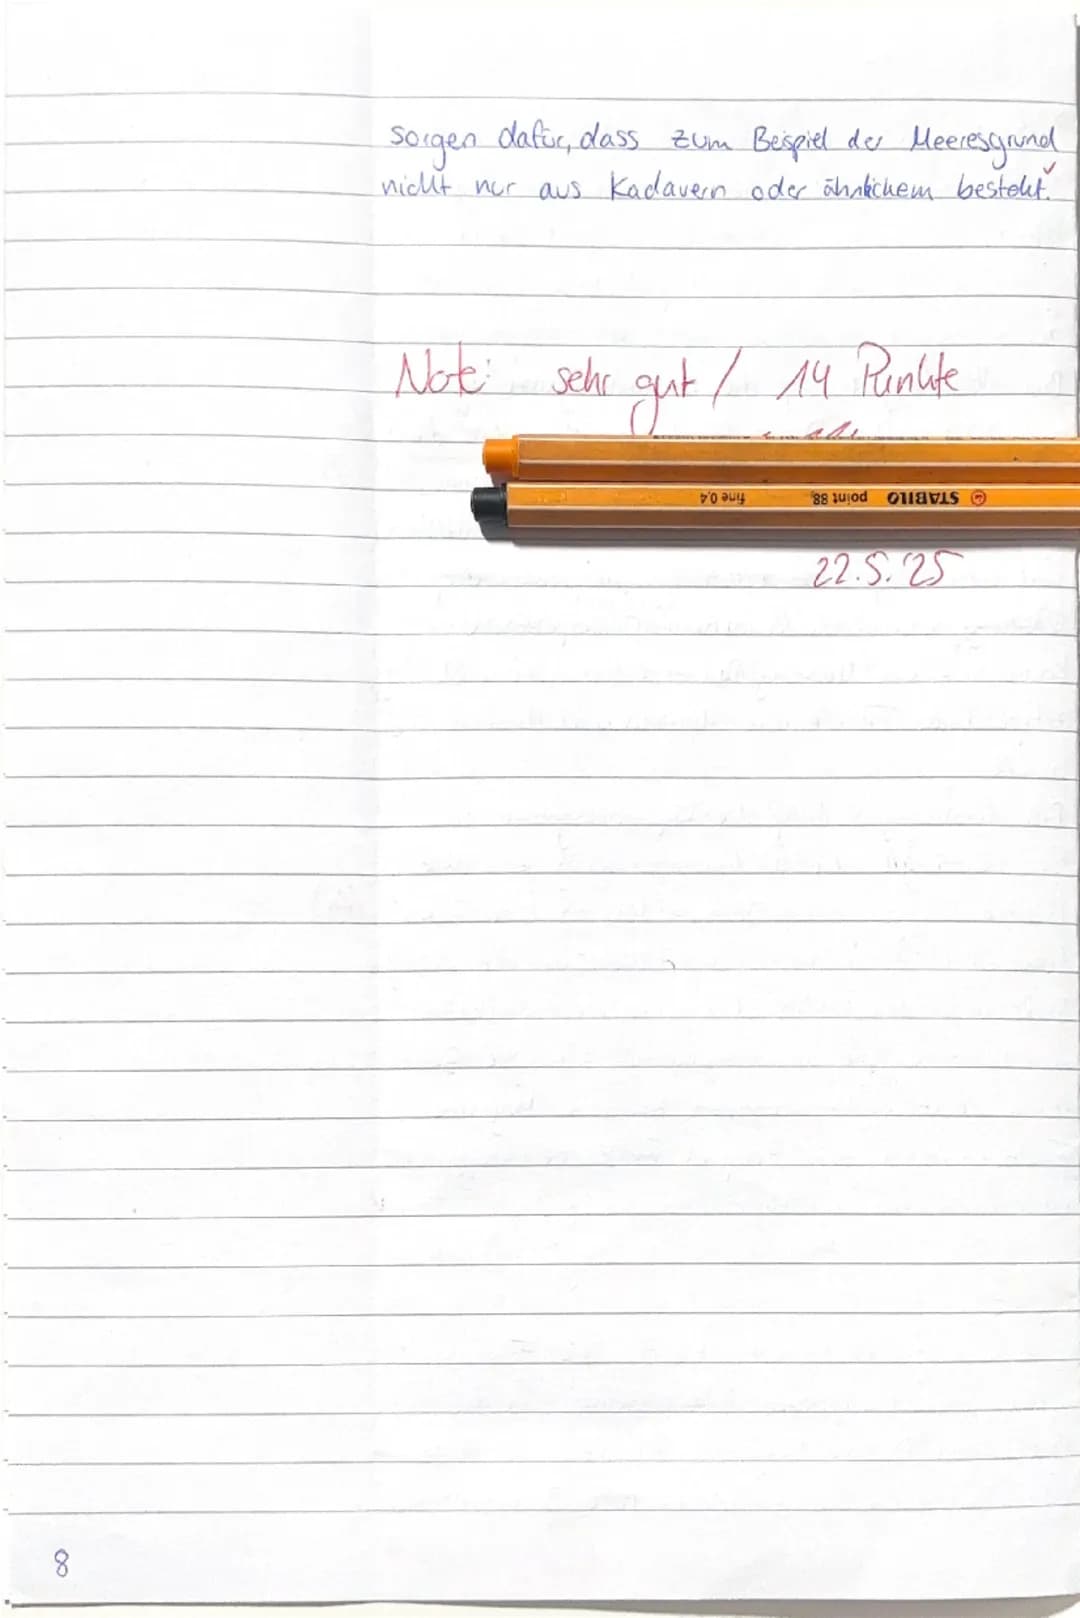 sorgen dafür, dass zum Beispiel der Meeresgrund
nicht nur aus Kadavern oder ähnlichem besteht.
Note: sehr gut / 14 Punkte
STABILO point 88 fine 0,4
22.5.'25
8